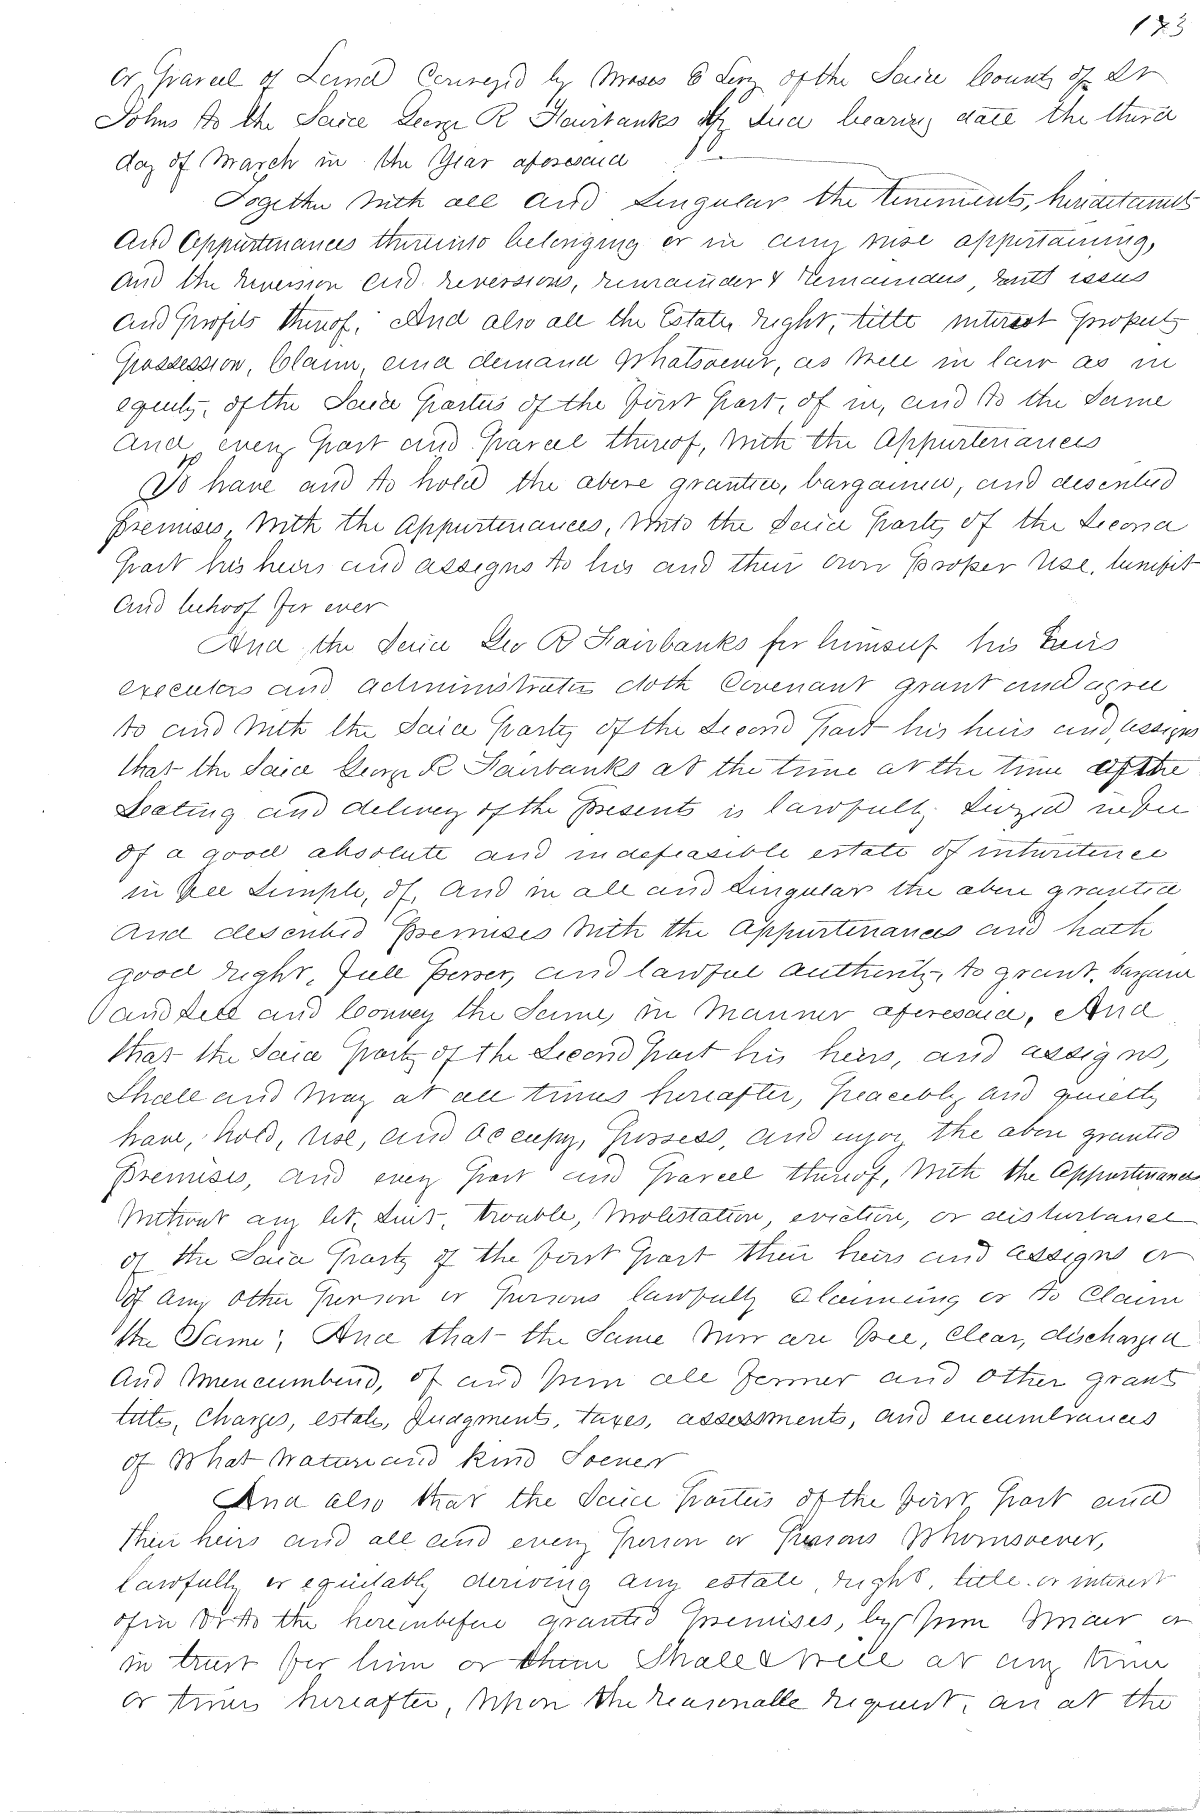 173
or Parcel of Land Conveyed by Moses E Levy of the Said County of St
Johns to the Said George R Fairbanks by Deed bearing date the third
day of March in the Year aforesaid
Together with all and Singular the tenements, hereditaments
and appurtenances thereunto belonging or in any wise appertaining,
and the reversion and reversions, remainder & remainders, rents issues
and Profits thereof; And also all the Estate, right, title interest Property
Possession, Claim, and demand Whatsoever, as Well in law as in
equity, of the Said Parties of the first Part, of in, and to the Same
and every Part and Parcel thereof, With the Appurtenances
To have and to hold the above granted, bargained, and described
Premises, With the appurtenances, Unto the Said Party of the Second
Part his heirs and assigns to his and their own Proper Use, benefit
and behoof for ever
And the Said Geo R Fairbanks for himself his heirs
executors and administrators doth Covenant grant and agree
to and With the Said Party of the Second Part his heirs and assigns
that the Said George R Fairbanks at the time at the time of the
Sealing and delivery of the Presents is lawfully Siezed in fee
of a good absolute and indefeasible estate of inheritence
in fee Simple, of, and in all and Singular the above granted
and described Premises With the appurtenances and hath
good right, full Power, and lawful authority, to grant, bargain
and Sell and Convey the Same, in Manner aforesaid, And
that the Said Party of the Second Part his heirs, and assigns,
Shall and May at all times hereafter, Peacebly and quietly
have, hold, use, and occupy, Possess, and enjoy the above granted
Premises, and every Part and Parcel thereof, With the Appurtenances
Without any let, Suit, trouble, Molestation, eviction, or disturbance
of the Said Party of the first Part their heirs and assigns or
of any other Person or Persons lawfully Claimcing or to Claim
the Same; And that the Same Now are free, Clear, discharged
and Unencumbered, of and from all former and other grants
titles, Charges, estates, Judgments, taxes, assessments, and encumbrances
of What Nature and kind Soever
And also that the Said Parties of the first Part and
their heirs and all and every Person or Persons Whomsoever,
lawfully or equitably deriving any estate, right, title or interest
of in Or to the hereinbefore granted Premises, by from Under or
in trust for him or them Shall & Will at any time
or times hereafter, Upon the reasonable request, an at the